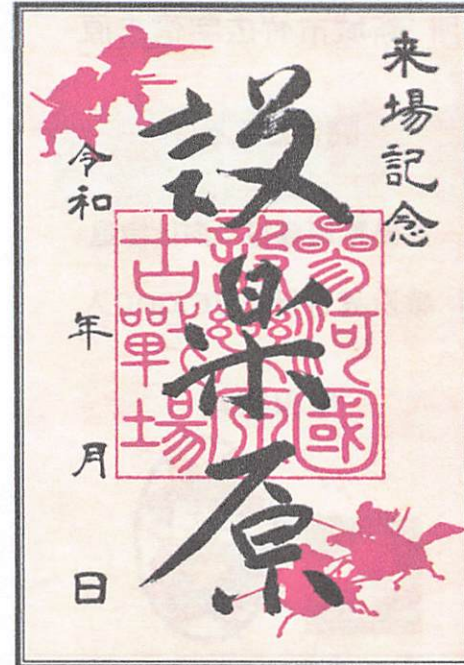 来場記念
設楽原
參河國
設樂原
古戰場
令和 年 月 日